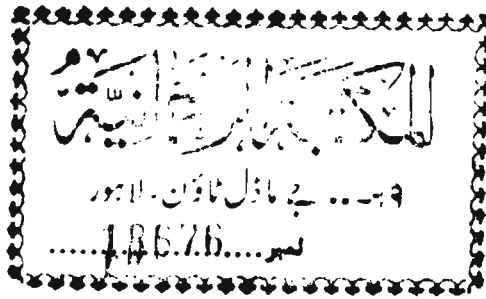 المكتبة الرحمانية
۹۹... جے ماڈل ٹاؤن۔ لاہور
نمبر....18676......